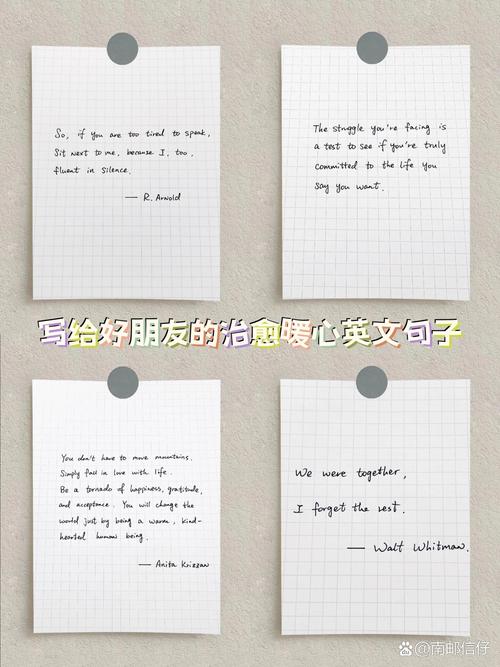 So, if you are too tired to speak,
Sit next to me, because I, too,
fluent in silence.
— R. Arnold
The struggle you're facing is
a test to see if you're truly
committed to the life you
say you want.
写给好朋友的治愈暖心英文句子
You don't have to move mountains.
Simply fall in love with life.
Be a tornado of happiness, gratitude,
and acceptance. You will change the
world just by being a warm, kind-
hearted human being.
— Anita Krizzan
We were together,
I forget the rest.
— Walt Whitman.
南邮信仔